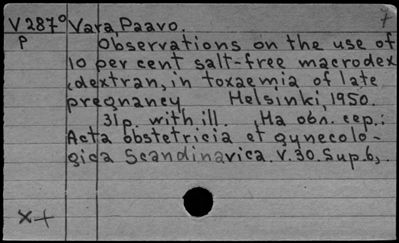 7
V287° Vara, Paavo.
P Observations on the use of
10 per cent salt-free macrodex
(dextran, in toxaemia of late
pregnancy Helsinki, 1950.
31p. with ill. (На обл. сер.:
Acta obstetricia et gynecolo-
gica Scandinavica. V.30. Sup.6,.
x+